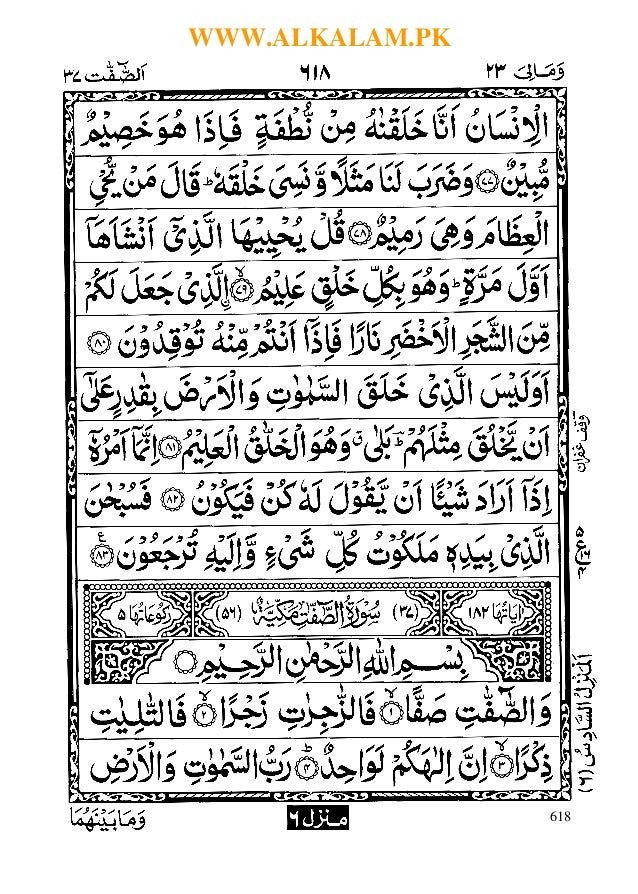 WWW.ALKALAM.PK
وَمَالِیَ ٢٣
٦١٨
اَلصّٰٓفّٰت ٣٧
الْاِنْسَانُ اَنَّا خَلَقْنٰهُ مِنْ نُّطْفَةٍ فَاِذَا هُوَ خَصِیْمٌ
مُّبِیْنٌ ﴿٧٧﴾ وَضَرَبَ لَنَا مَثَلًا وَّنَسِیَ خَلْقَهٗ ؕ قَالَ مَنْ یُّحْیِ
الْعِظَامَ وَهِیَ رَمِیْمٌ ﴿٧٨﴾ قُلْ یُحْیِیْهَا الَّذِیْۤ اَنْشَاَهَاۤ
اَوَّلَ مَرَّةٍ ؕ وَهُوَ بِكُلِّ خَلْقٍ عَلِیْمُ ۙ﴿٧٩﴾ اِ۟لَّذِیْ جَعَلَ لَكُمْ
مِّنَ الشَّجَرِ الْاَخْضَرِ نَارًا فَاِذَاۤ اَنْتُمْ مِّنْهُ تُوْقِدُوْنَ ﴿٨٠﴾
اَوَلَیْسَ الَّذِیْ خَلَقَ السَّمٰوٰتِ وَالْاَرْضَ بِقٰدِرٍ عَلٰۤی
اَنْ یَّخْلُقَ مِثْلَهُمْ ؕ بَلٰی ۗ وَهُوَ الْخَلّٰقُ الْعَلِیْمُ ﴿٨١﴾ اِنَّمَاۤ اَمْرُهٗۤ
اِذَاۤ اَرَادَ شَیْـًٔا اَنْ یَّقُوْلَ لَهٗ كُنْ فَیَكُوْنُ ﴿٨٢﴾ فَسُبْحٰنَ
الَّذِیْ بِیَدِهٖ مَلَكُوْتُ كُلِّ شَیْءٍ وَّاِلَیْهِ تُرْجَعُوْنَ ﴿٨٣﴾ ع
وقف غفران
اٰیَاتُهَا ١٨٢ (٣٧) سُوْرَةُ الصّٰٓفّٰتِ مَكِّیَّةٌ (٥٦) رُكُوْعَاتُهَا ٥
بِسْمِ اللّٰهِ الرَّحْمٰنِ الرَّحِیْمِ
وَالصّٰٓفّٰتِ صَفًّا ۙ﴿١﴾ فَالزّٰجِرٰتِ زَجْرًا ۙ﴿٢﴾ فَالتّٰلِیٰتِ
ذِكْرًا ۙ﴿٣﴾ اِنَّ اِلٰهَكُمْ لَوَاحِدٌ ؕ﴿٤﴾ رَبُّ السَّمٰوٰتِ وَالْاَرْضِ
اَلْمَنْزِلُ السَّادِسُ (٦)
وَمَا بَیْنَهُمَا
منزل ٦
618